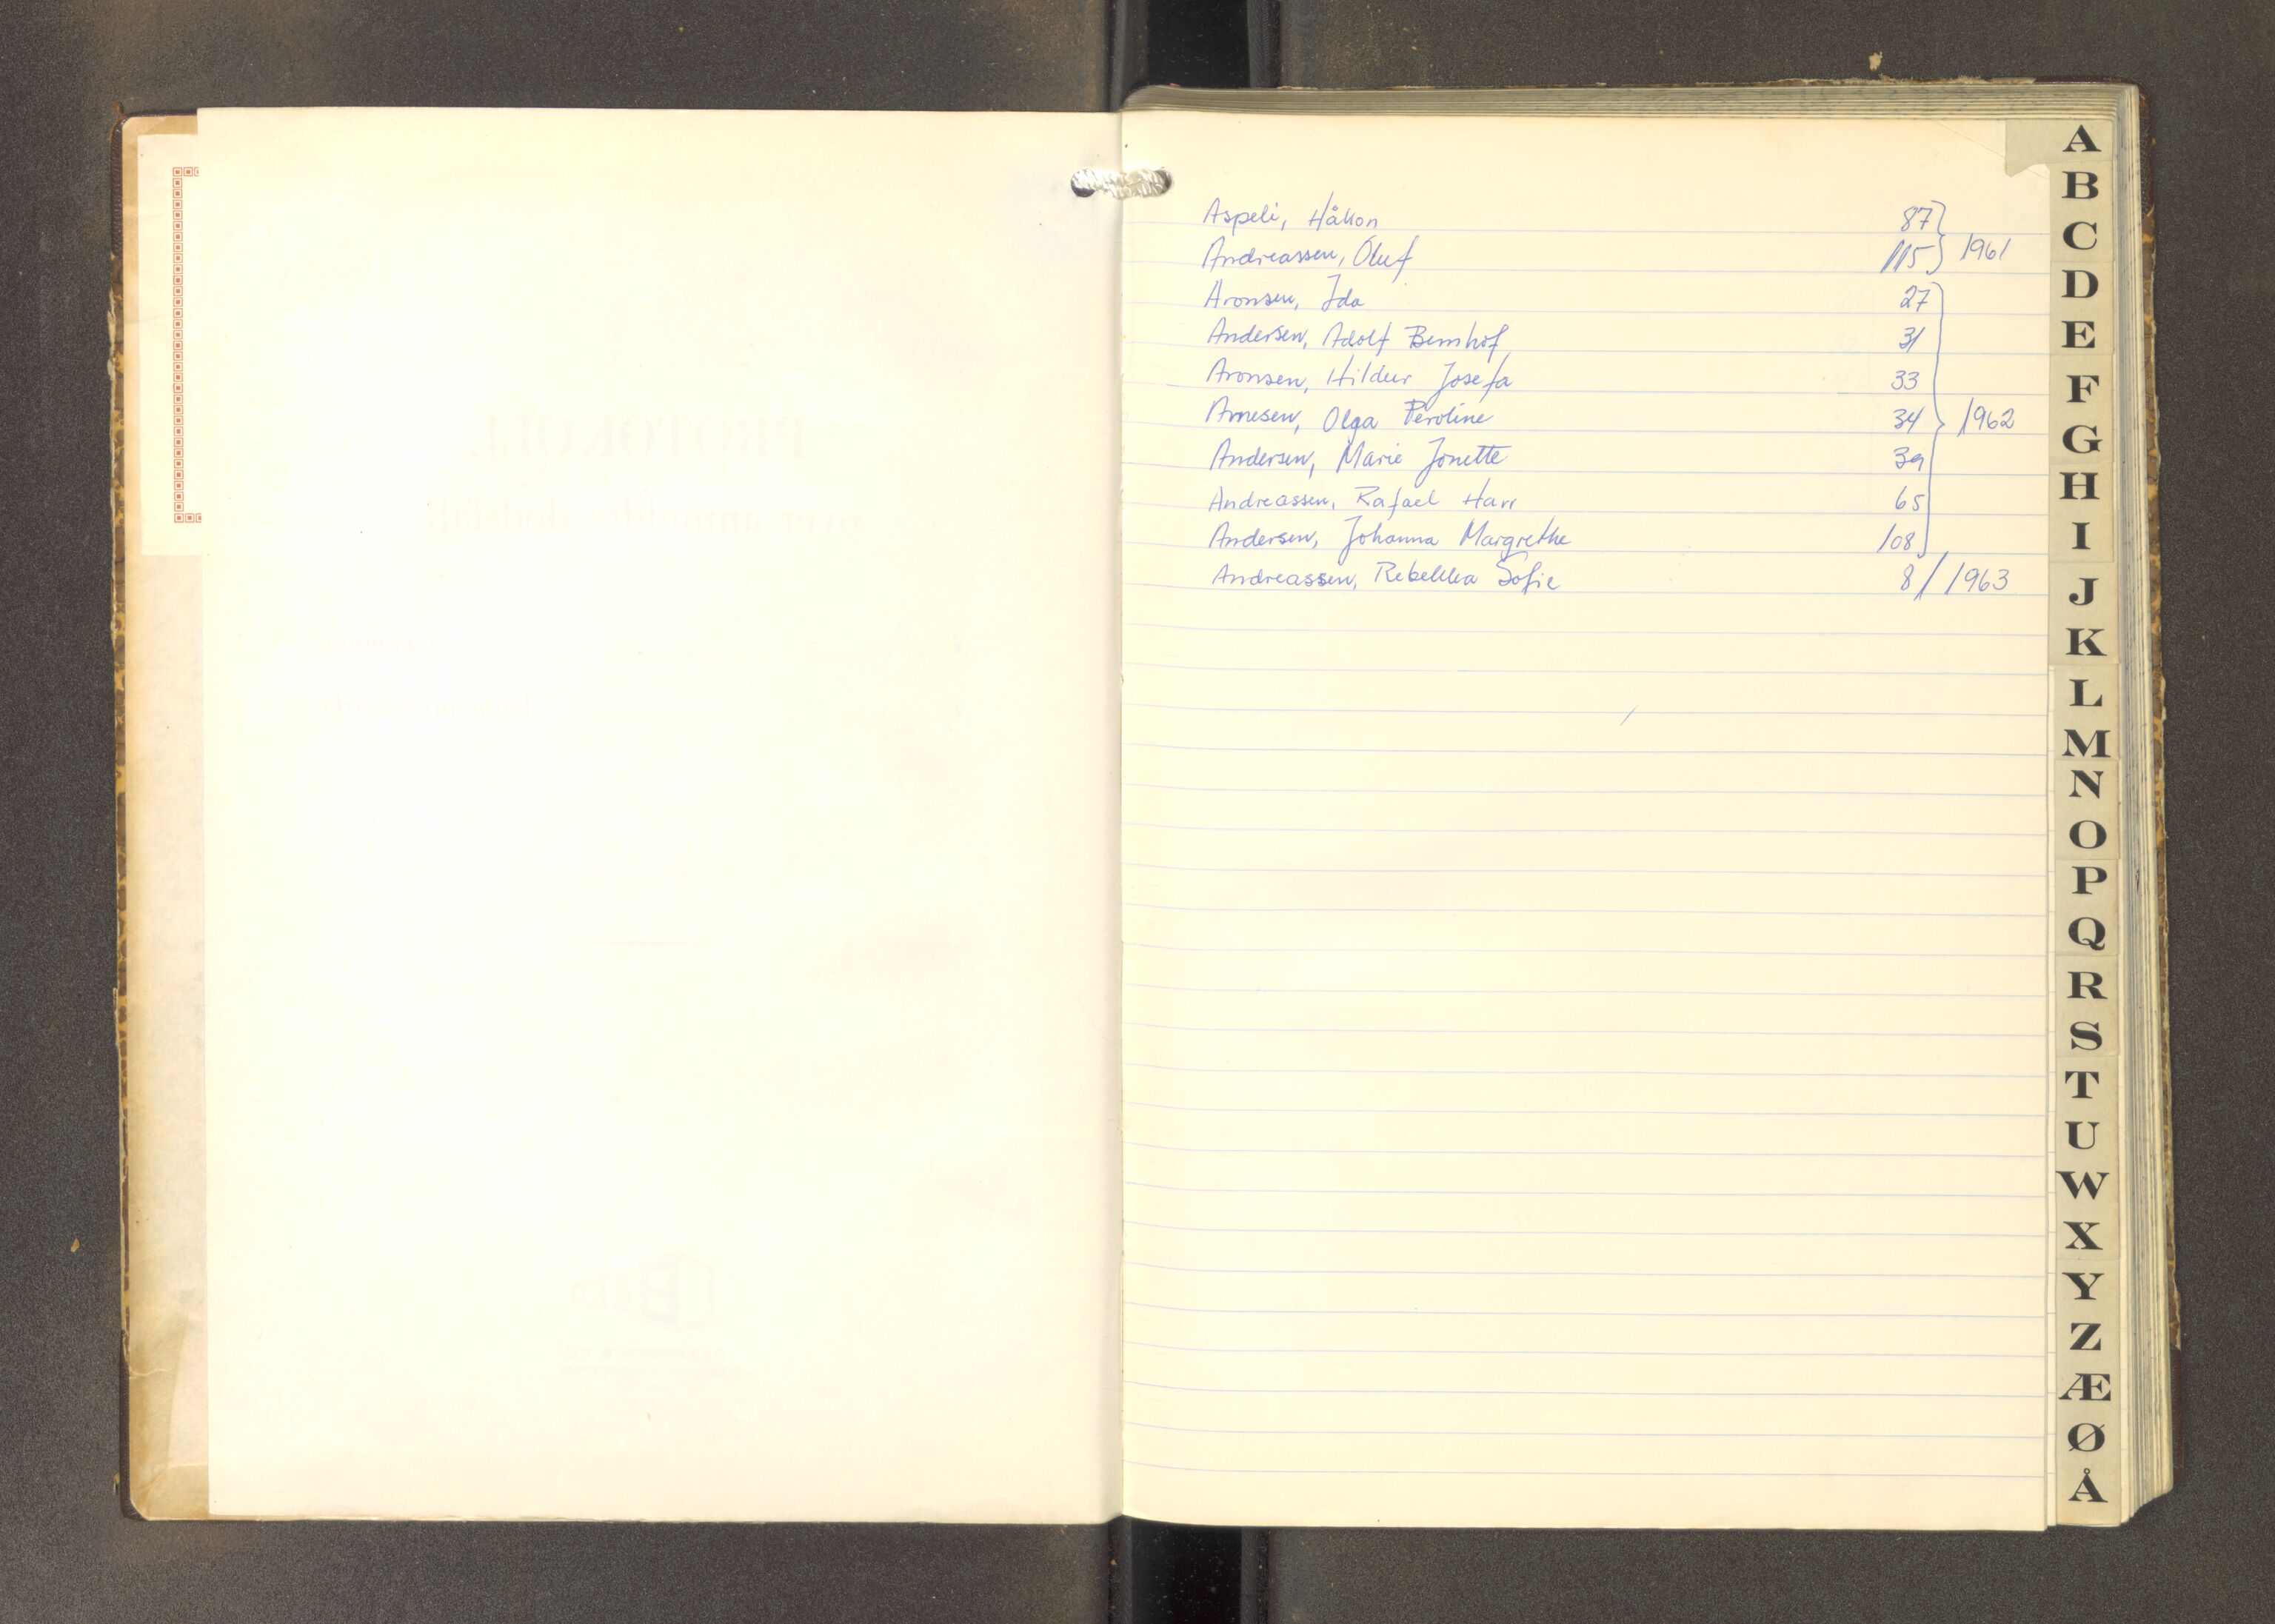 Aspeli, Håkon 87
Andreassen, Oluf 115 } 1961
Aronsen, Ida 27
Andersen, Adolf Bernhof 31
Aronsen, Hildur Josefa 33
Arnesen, Olga Peroline 34 } 1962
Andersen, Marie Jonette 39
Andreassen, Rafael Harr 65
Andersen, Johanna Margrethe 108
Andreassen, Rebekka Sofie 8 / 1963
A
B
C
D
E
F
G
H
I
J
K
L
M
N
O
P
Q
R
S
T
U
W
X
Y
Z
Æ
Ø
Å